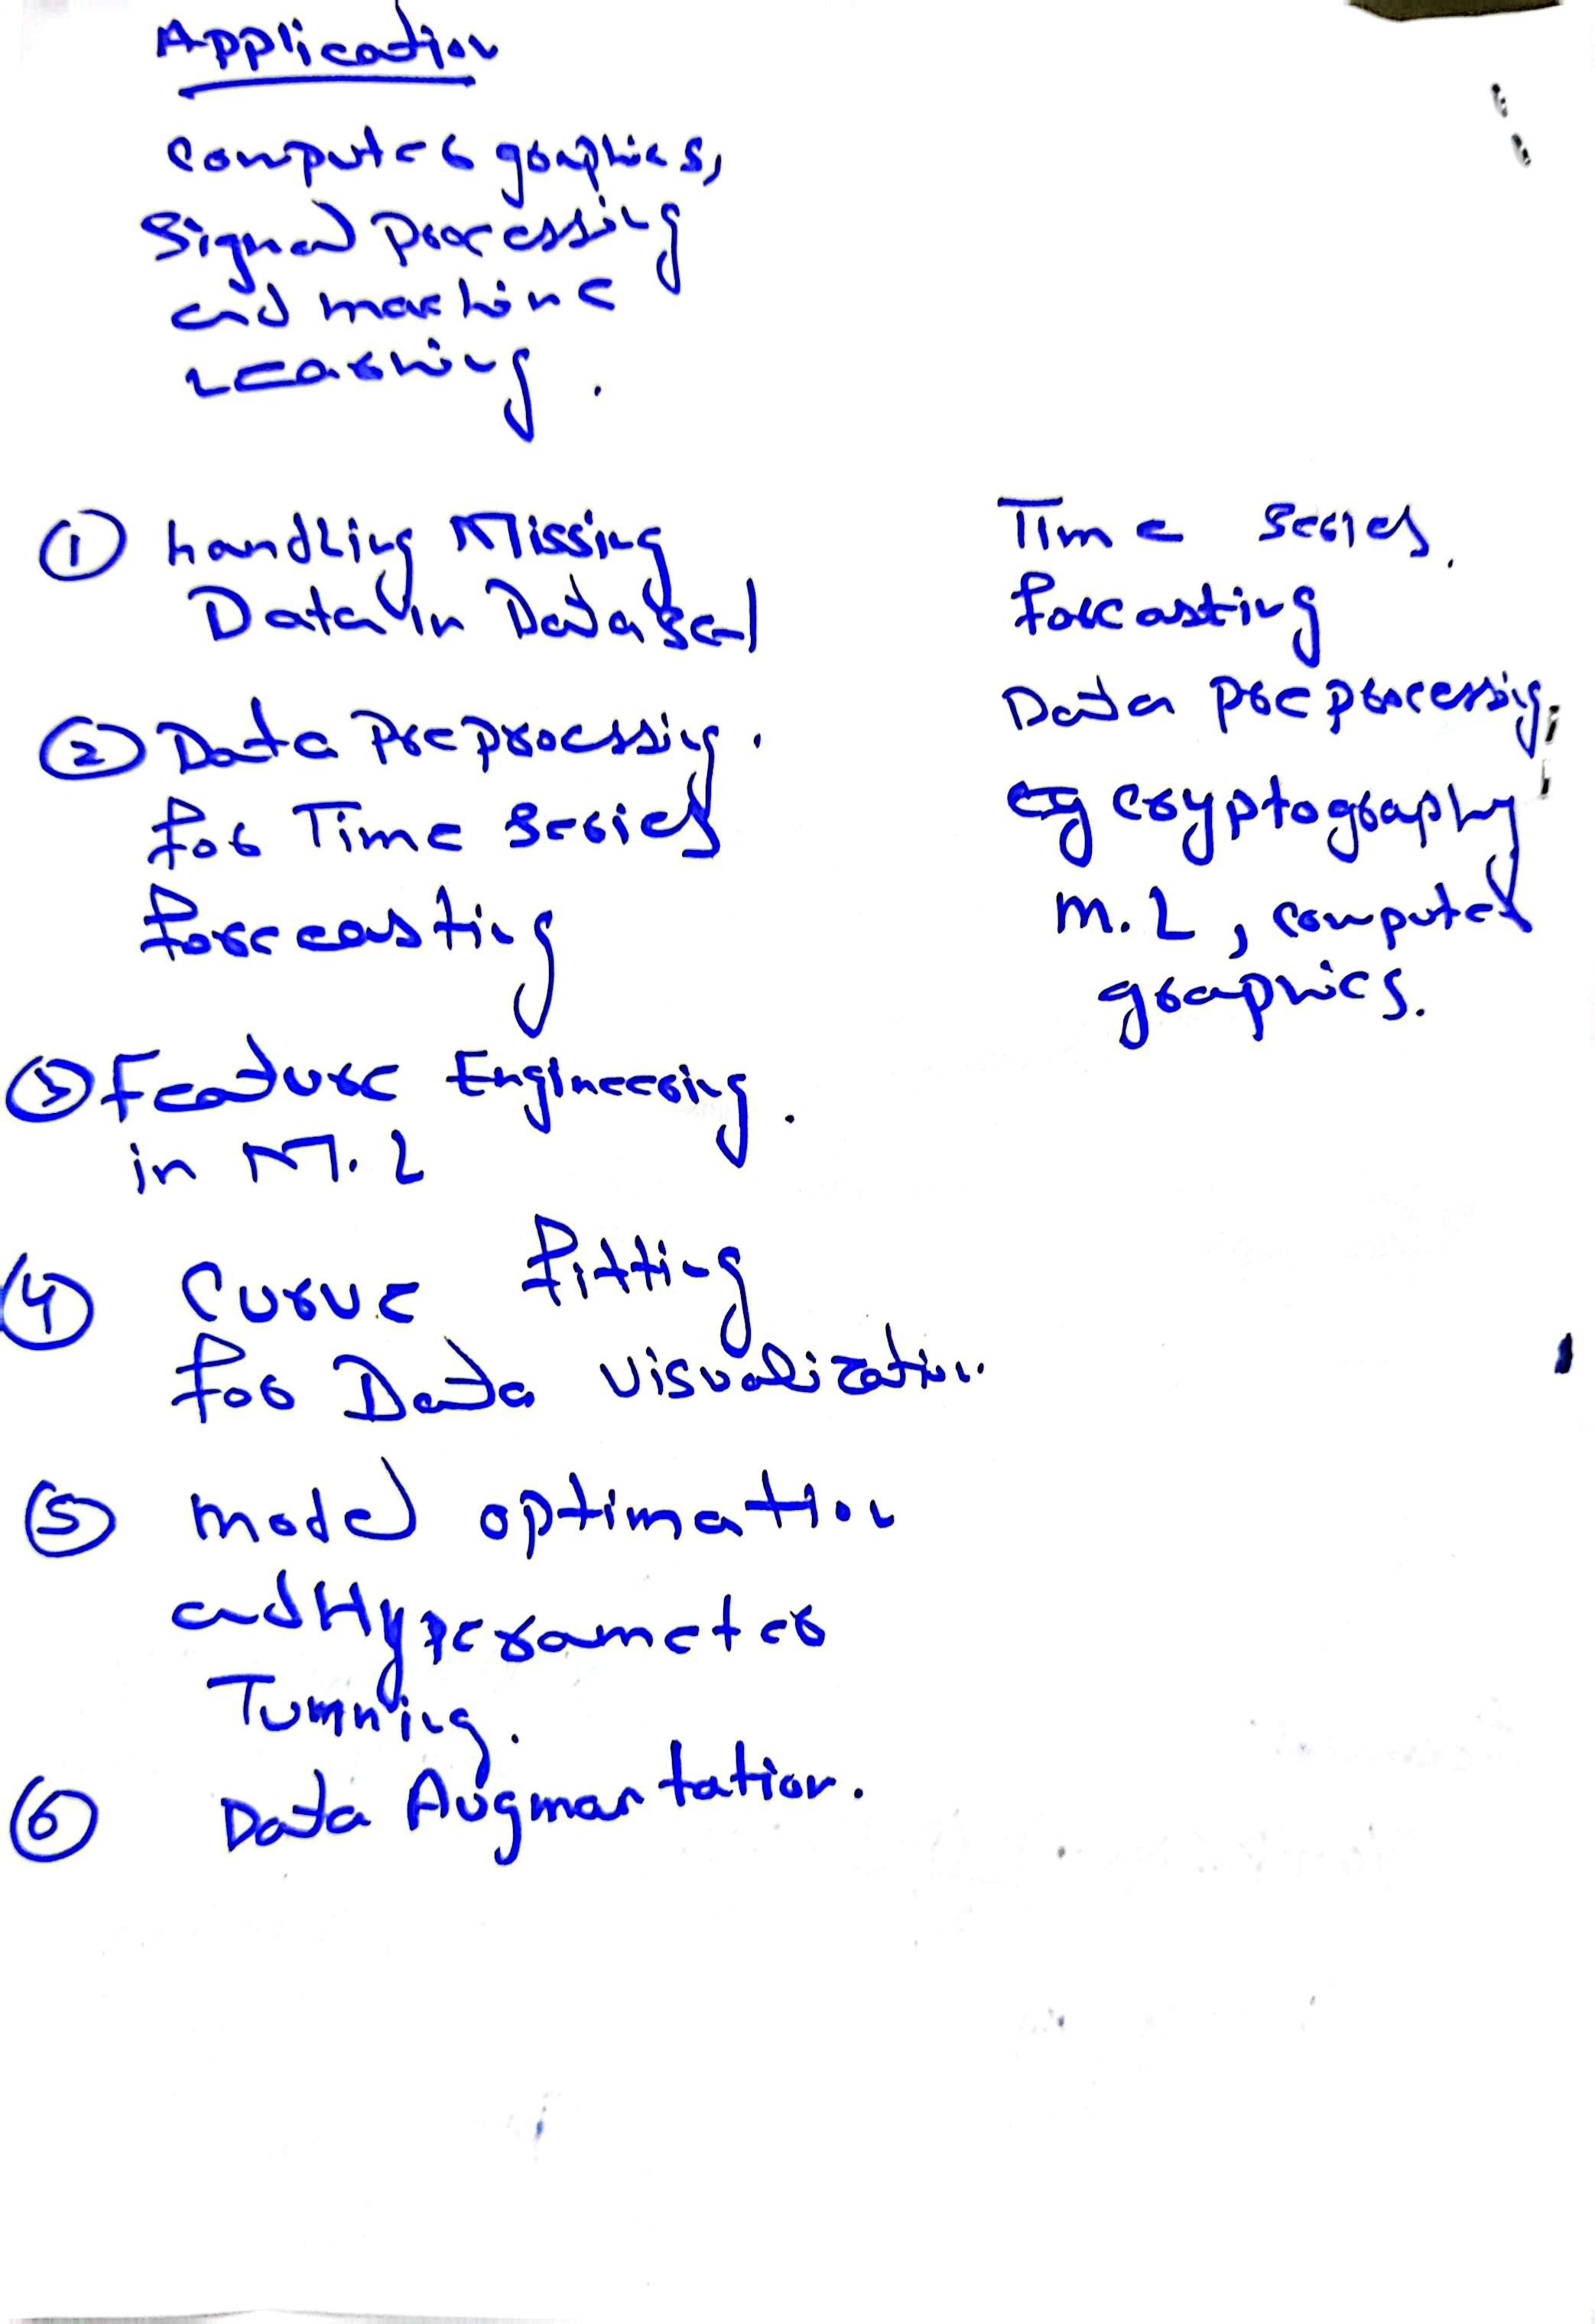 Application
Computer graphics,
Signal Processing
and machine
Learning.
① handling Missing
Data in Dataset
② Data Preprocessing.
for Time Series
forecasting
③ Feature Engineering.
in M.L
④ Curve fitting
for Data visualization.
⑤ model optimation
and Hyperameter
Tumning.
⑥ Data Augmantation.
Time Series.
forcasting
Data preprocessing,
eg cryptography
M.L, computer
graphics.